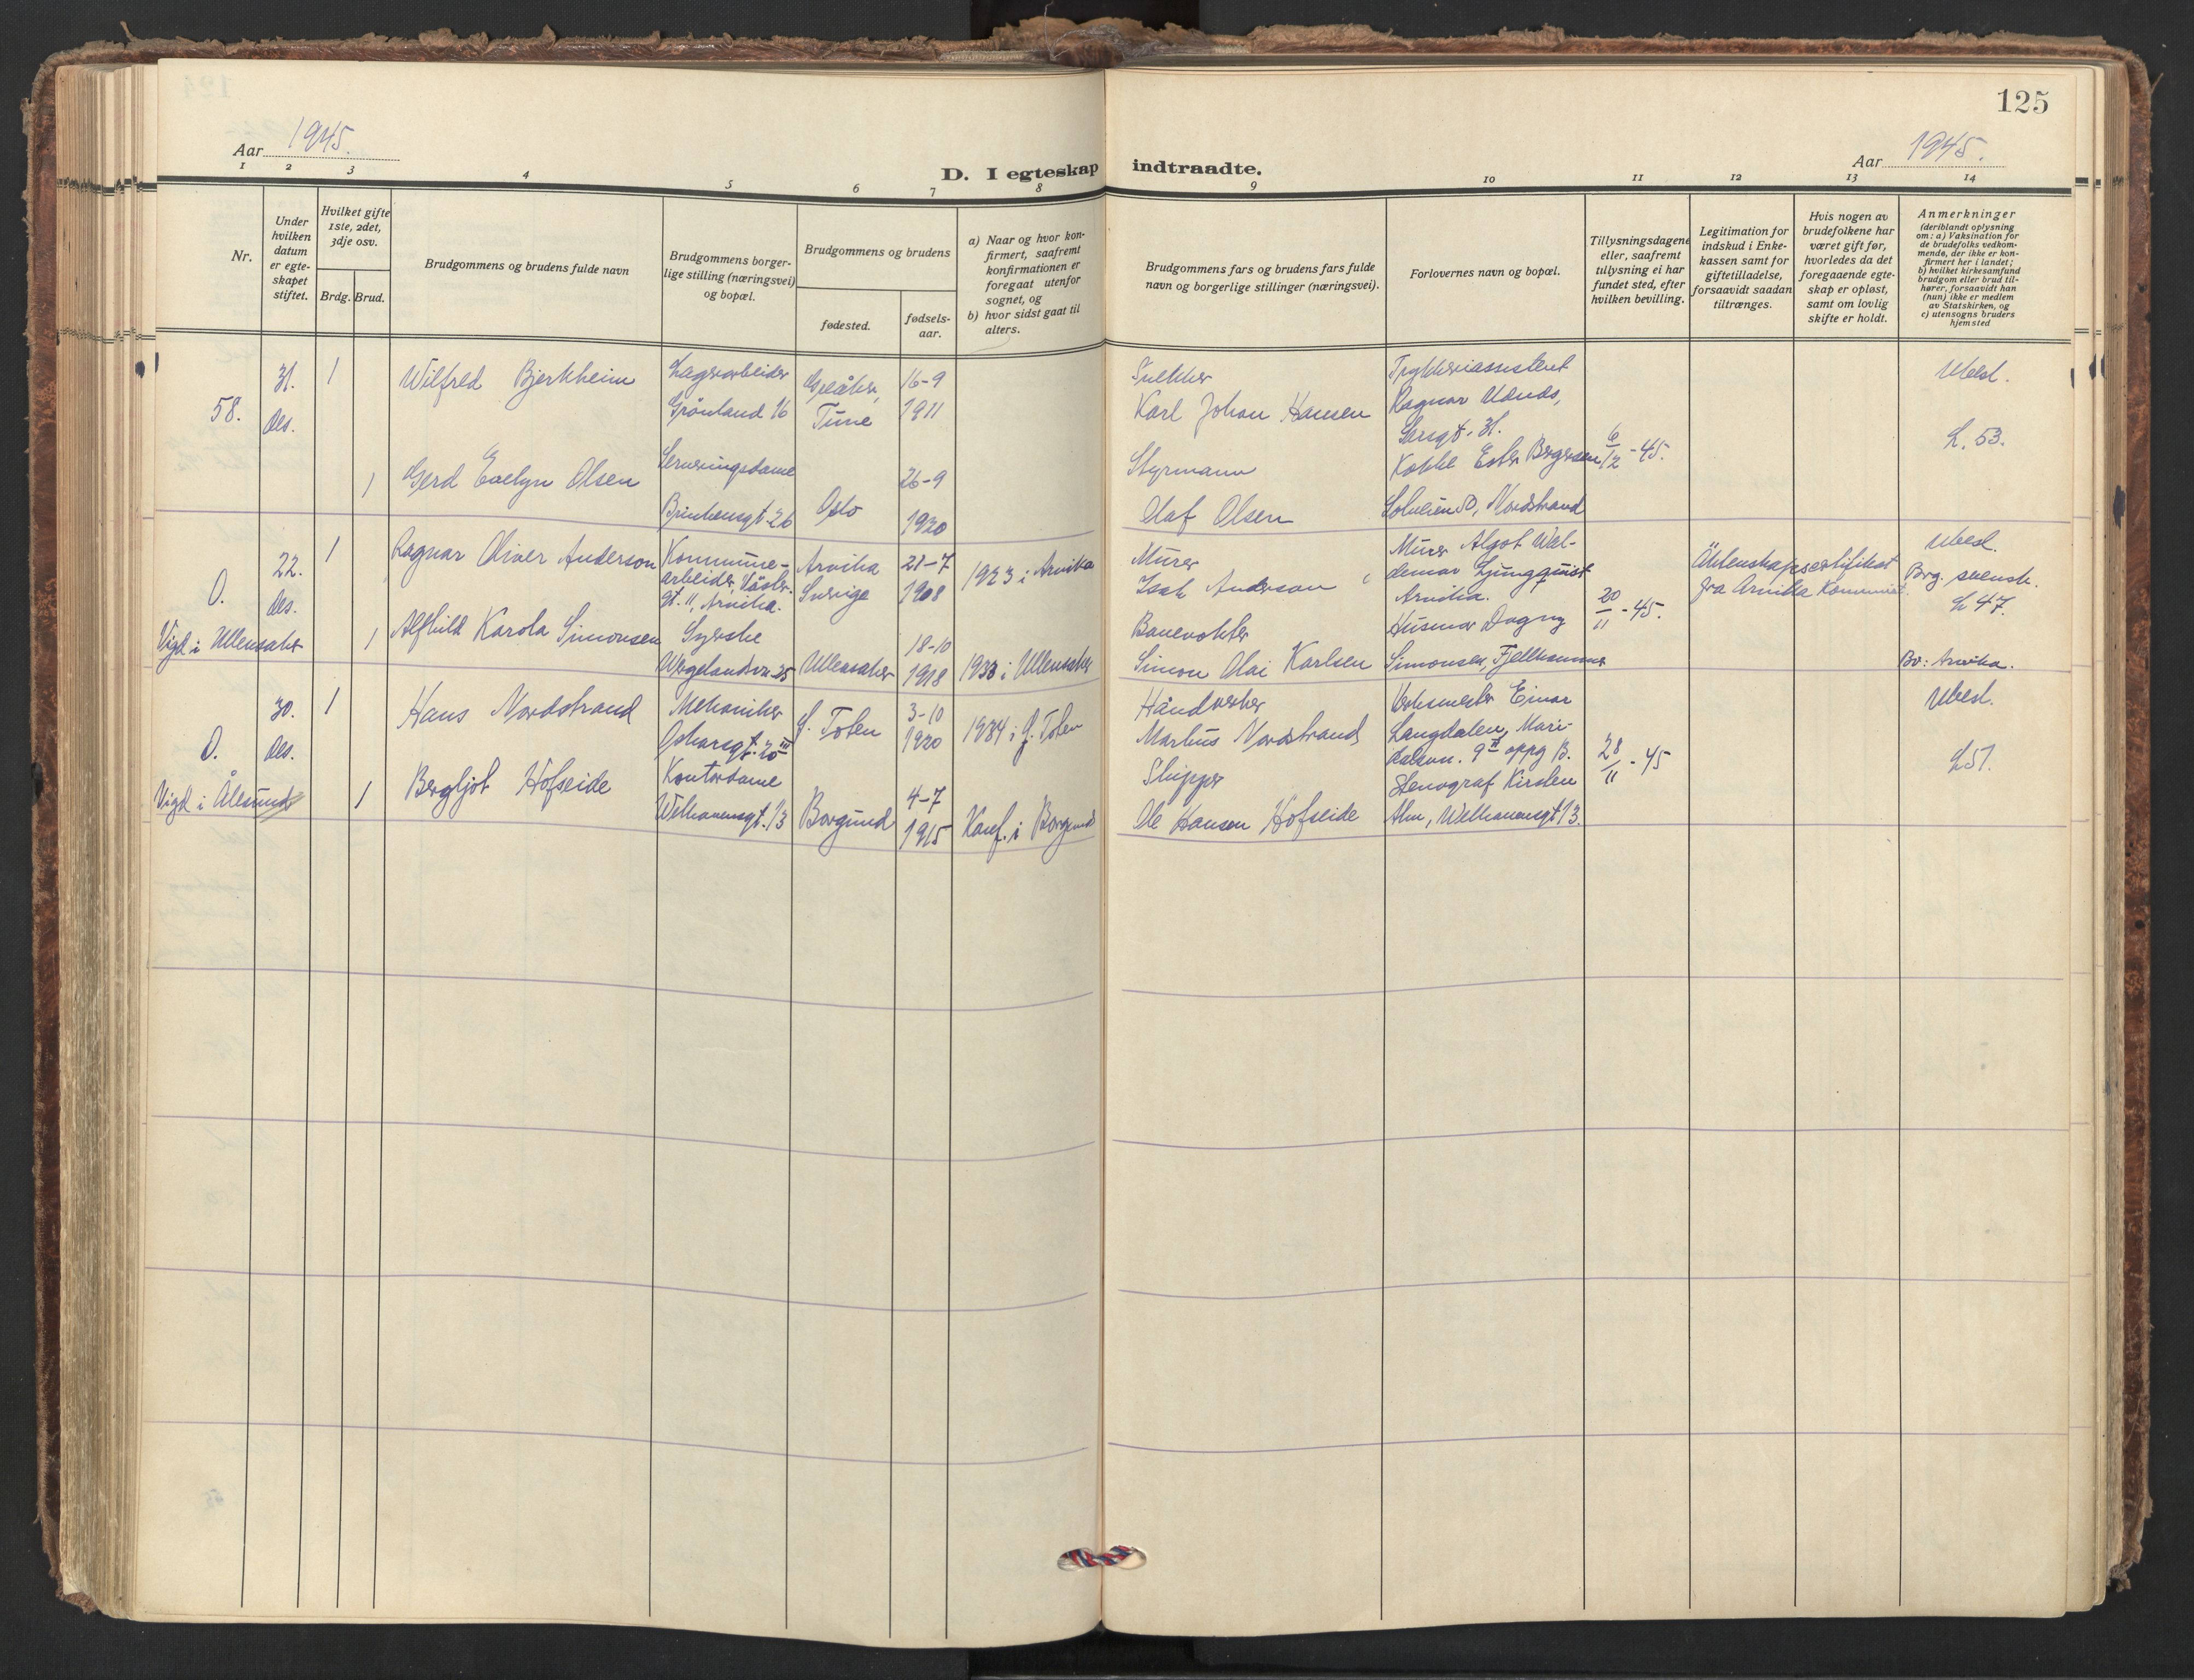 125
Aar 1945.
D. I egteskap indtraadte.
Aar 1945.
1 2 3 4 5 6 7 8 9 10 11 12 13 14
Nr.
Under hvilken datum er egte-skapet stiftet.
Hvilket gifte 1ste, 2det, 3dje osv.
Brdg. Brud.
Brudgommens og brudens fulde navn
Brudgommens borger-
lige stilling (næringsvei)
og bopæl.
Brudgommens og brudens
fødested.
fødsels-
aar.
a) Naar og hvor kon-
firmert, saafremt
konfirmationen er
foregaat utenfor
sognet, og
b) hvor sidst gaat til
alters.
Brudgommens fars og brudens fars fulde
navn og borgerlige stillinger (næringsvei).
Forlovernes navn og bopæl.
Tillysningsdagene
eller, saafremt
tillysning ei har
fundet sted, efter
hvilken bevilling.
Legitimation for
indskud i Enke-
kassen samt for
giftetilladelse,
forsaavidt saadan
tiltrænges.
Hvis nogen av
brudefolkene har
været gift før,
hvorledes da det
foregaaende egte-
skap er opløst,
samt om lovlig
skifte er holdt.
Anmerkninger
(deriblandt oplysning
om: a) Vaksination for
de brudefolks vedkom-
mende, der ikke er kon-
firmert her i landet;
b) hvilket kirkesamfund
brudgom eller brud til-
hører, forsaavidt han
(hun) ikke er medlem
av Statskirken, og
c) utensogns bruders
hjemsted
58.
31.
des.
1
Wilfred Bjerkheim
Lagerarbeider
Grönland 16
Greåker,
Tune
16-9
1911
Karl Johan Hansen
Trykkeriassistent
Ragnar
Ubesl.
L. 53.
1
Gerd Evelyn Olsen
Serveringsdame
Oslo
26-9
1920
Styrmann
Olaf Olsen
Kokke Ester Bergersen
Nordstrand
6/12 - 45.
O.
Vigd i Ullensaker
22.
des.
1
Ragnar Oliver Anderson
Kommune-
arbeider, Väster-
gt. 11, Arvika.
Arvika
Sverige
21-7
1908
1923 i Arvika
Murer
Isak Anderson
Murer Algot Wal-
demar Ljungquist
Arvika.
20/11 - 45.
Äktenskapscertifikat
fra Arvika Kommune.
Ubesl.
Brg. svensk.
L 47.
1
Alfhild Karola Simonsen
Syerske
Wergelandsvn 25
Ullensaker
18-10
1918
1933 i Ullensaker
Banevokter
Simon Olai Karlsen
Husmor Dagny
Simonsen, Fjellhammer
Bo: Arvika.
O.
Vigd i Ålesund
30.
des.
1
Hans Nordstrand
Mekaniker
Oskarsgt. 20 III
Ø. Toten
3-10
1920
1934 i Ø. Toten
Håndverker
Markus Nordstrand
Verksmester Einar
Langdalen, Mari-
dalsvn. 9 II oppg B.
28/11 - 45
Ubesl.
L 51.
1
Bergljot Hofseide
Kontordame
Welhavensgt. 13
Borgund
4-7
1915
Konf. i Borgund
Skipper
Ole Hansen Hofseide
Stenograf Kirsten
Alm, Welhavensgt 13.